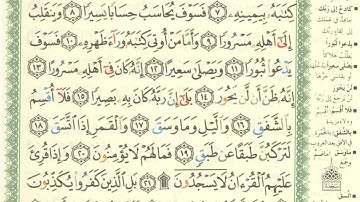 كِتَٰبَهُۥ بِيَمِينِهِۦ ﴿٧﴾ فَسَوْفَ يُحَاسَبُ حِسَابًا يَسِيرًا ﴿٨﴾ وَيَنقَلِبُ
إِلَىٰٓ أَهْلِهِۦ مَسْرُورًا ﴿٩﴾ وَأَمَّا مَنْ أُوتِىَ كِتَٰبَهُۥ وَرَآءَ ظَهْرِهِۦ ﴿١٠﴾ فَسَوْفَ
يَدْعُوا۟ ثُبُورًا ﴿١١﴾ وَيَصْلَىٰ سَعِيرًا ﴿١٢﴾ إِنَّهُۥ كَانَ فِىٓ أَهْلِهِۦ مَسْرُورًا ﴿١٣﴾
إِنَّهُۥ ظَنَّ أَن لَّن يَحُورَ ﴿١٤﴾ بَلَىٰٓ إِنَّ رَبَّهُۥ كَانَ بِهِۦ بَصِيرًا ﴿١٥﴾ فَلَآ أُقْسِمُ
بِٱلشَّفَقِ ﴿١٦﴾ وَٱلَّيْلِ وَمَا وَسَقَ ﴿١٧﴾ وَٱلْقَمَرِ إِذَا ٱتَّسَقَ ﴿١٨﴾
لَتَرْكَبُنَّ طَبَقًا عَن طَبَقٍ ﴿١٩﴾ فَمَا لَهُمْ لَا يُؤْمِنُونَ ﴿٢٠﴾ وَإِذَا قُرِئَ
عَلَيْهِمُ ٱلْقُرْءَانُ لَا يَسْجُدُونَ ۩ ﴿٢١﴾ بَلِ ٱلَّذِينَ كَفَرُوا۟ يُكَذِّبُونَ